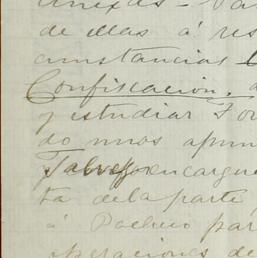 anexas - Va
de ellas á res
cunstancias
Confiscacion.
y estudiar For
do unos apun
Talvez encargue
ta de la parte
á Pacheco par
operaciones de